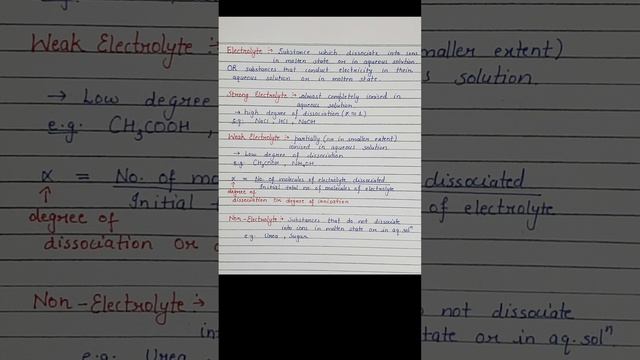 Electrolyte :- Substance which dissociate into ions
in molten state or in aqueous solution
OR substances that conduct electricity in their
aqueous solution or in molten state.
Strong Electrolyte :- almost completely ionised in
aqueous solution.
→ high degree of dissociation (α ≈ 1)
e.g: NaCl, HCl, NaOH
Weak Electrolyte :- partially (or in smaller extent)
ionised in aqueous solution.
→ Low degree of dissociation
e.g. CH₃COOH, NH₄OH
α = No. of molecules of electrolyte dissociated
Initial total no. of molecules of electrolyte
↑
degree of
dissociation OR degree of ionisation
Non-Electrolyte :- Substances that do not dissociate
into ions in molten state or in aq. solⁿ
e.g. Urea, Sugar
Weak Electrolyte :-
maller extent)
s solution.
→ Low degree
e.g: CH₃COOH,
α = No. of mo
dissociated
Initial
of electrolyte
↑
degree of
dissociation or
Non-Electrolyte :-
o not dissociate
in
tate or in aq. solⁿ
e.g. Urea